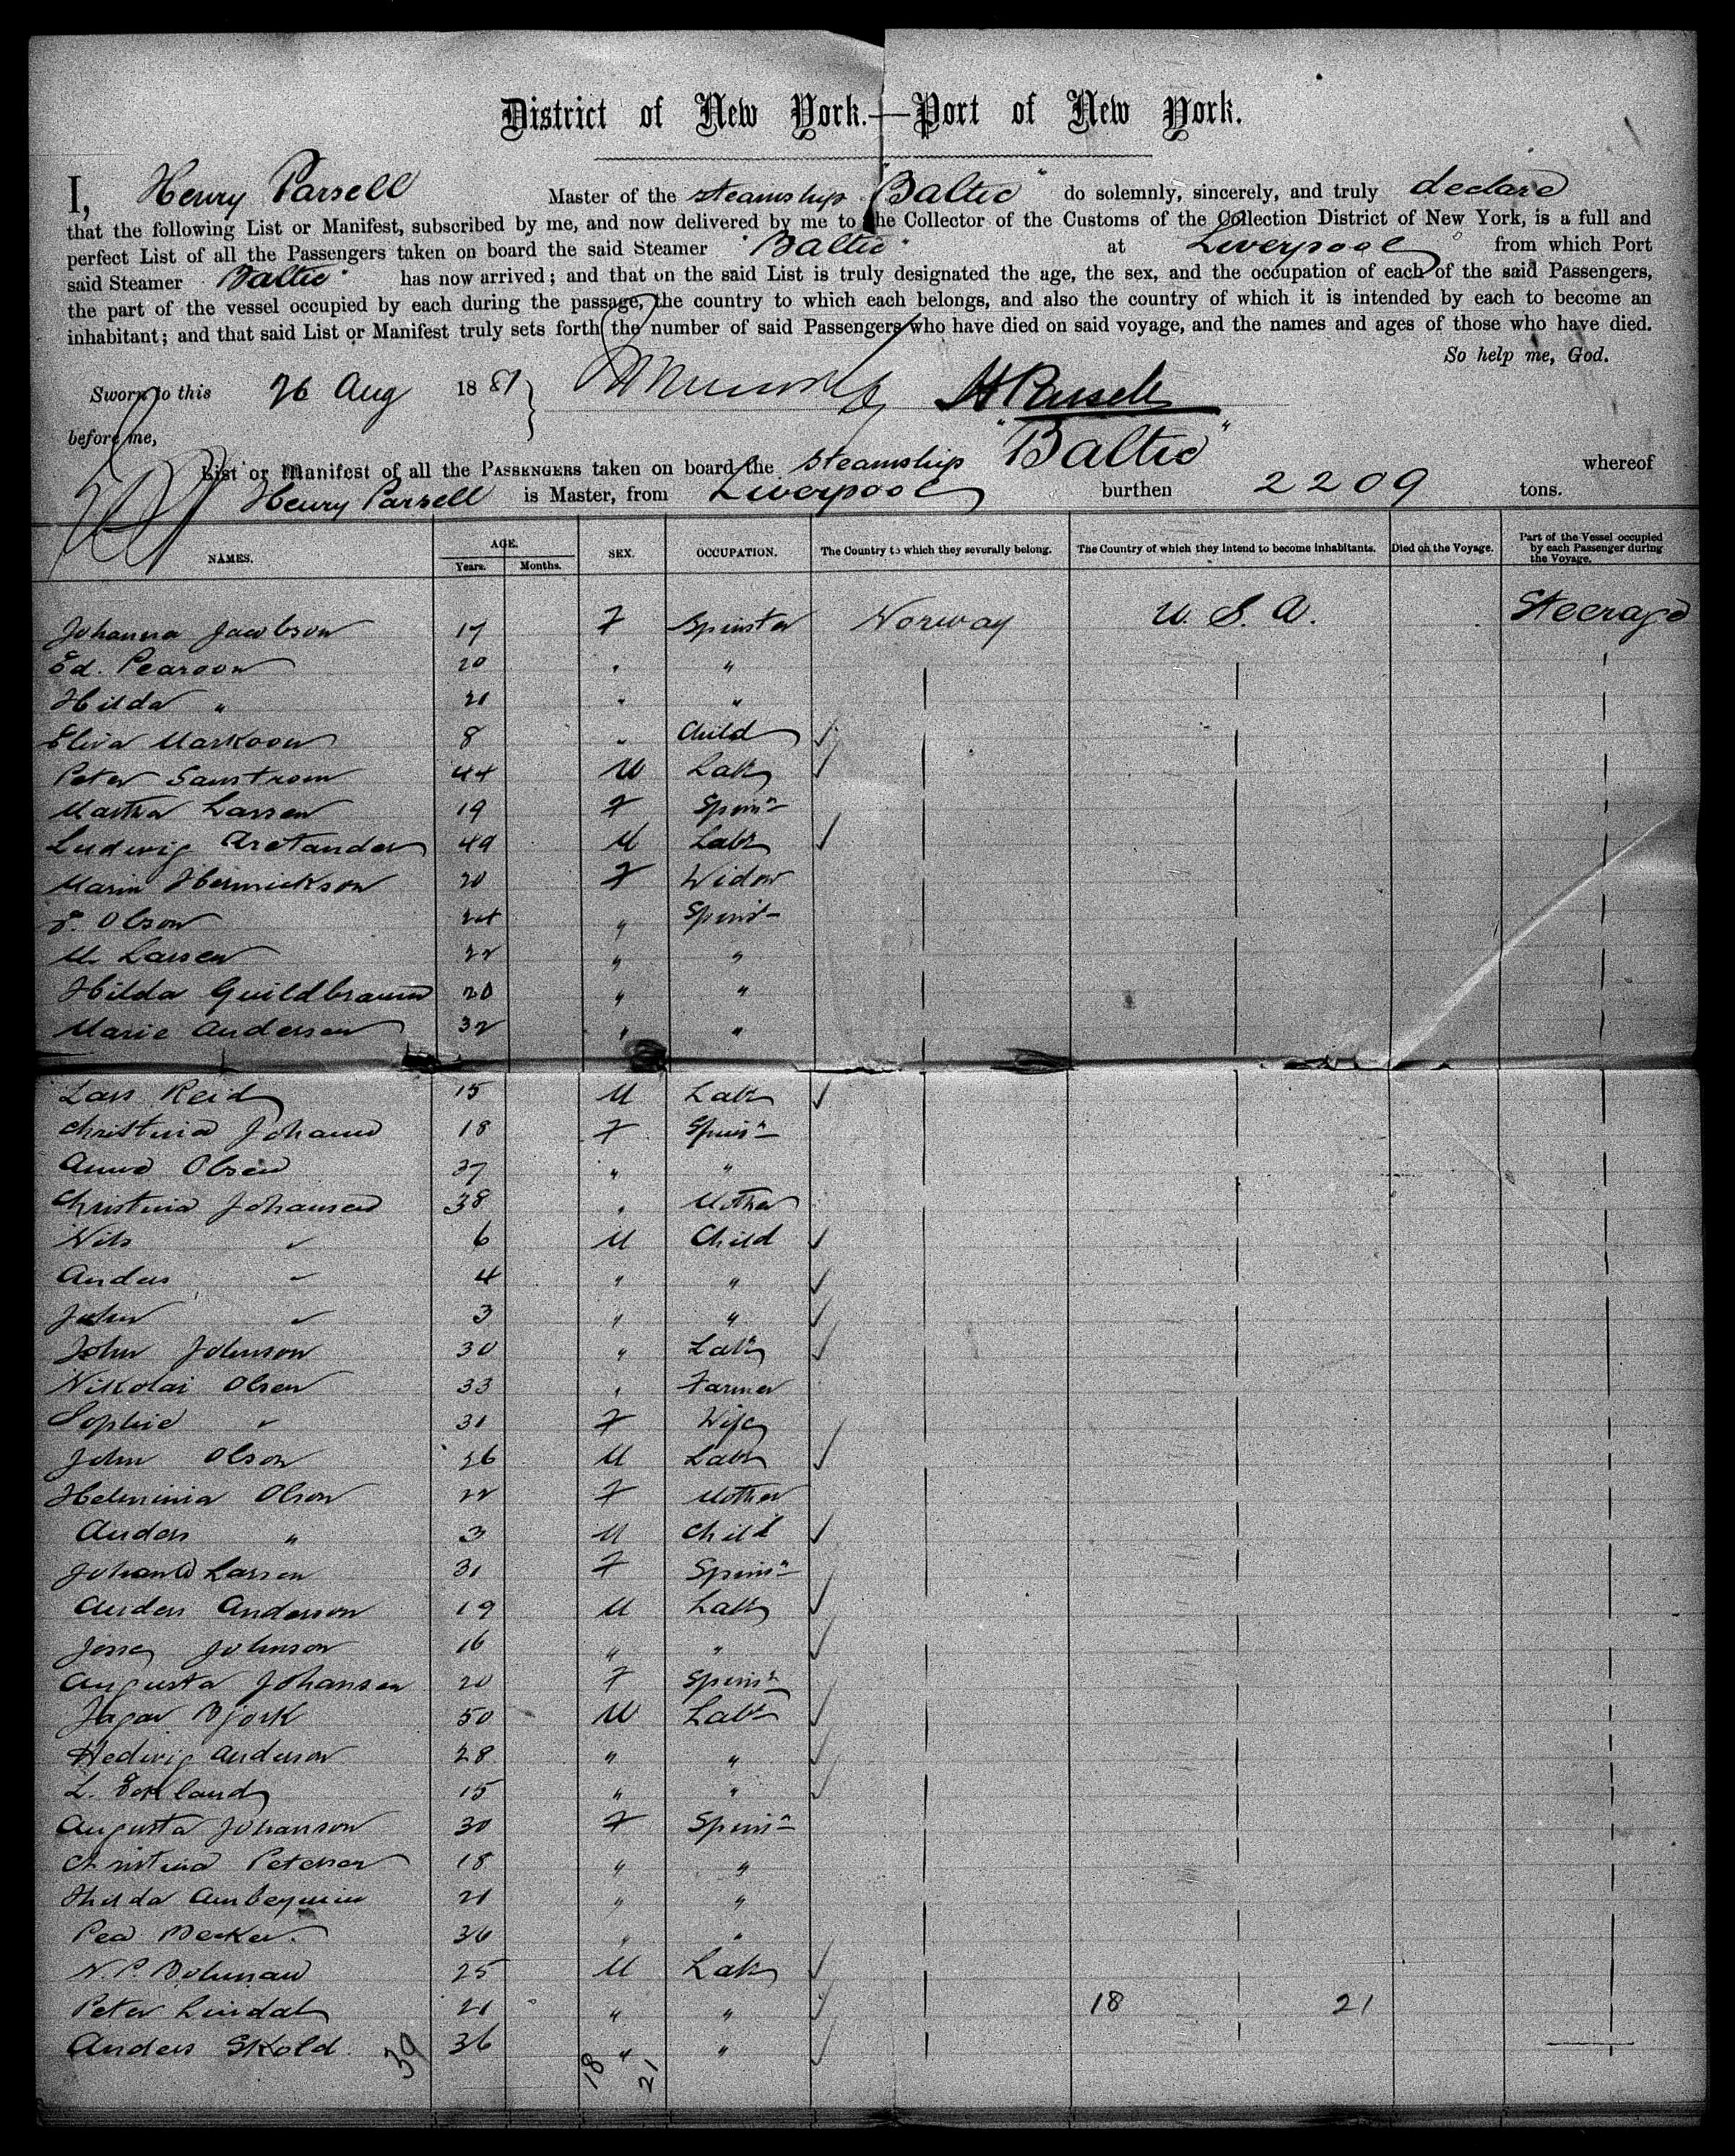 District of New York.—Port of New York.
I, Henry Parsell Master of the steamship "Baltic" do solemnly, sincerely, and truly declare
that the following List or Manifest, subscribed by me, and now delivered by me to the Collector of the Customs of the Collection District of New York, is a full and
perfect List of all the Passengers taken on board the said Steamer "Baltic" at Liverpool from which Port
said Steamer Baltic" has now arrived; and that on the said List is truly designated the age, the sex, and the occupation of each of the said Passengers,
the part of the vessel occupied by each during the passage, the country to which each belongs, and also the country of which it is intended by each to become an
inhabitant; and that said List or Manifest truly sets forth the number of said Passengers who have died on said voyage, and the names and ages of those who have died.
So help me, God.
Sworn to this 26 Aug 1881 H Parsell
before me,
List or Manifest of all the PASSENGERS taken on board the steamship "Baltic" whereof
Henry Parsell is Master, from Liverpool burthen 2209 tons.
NAMES. AGE. Years. Months. SEX. OCCUPATION. The Country to which they severally belong. The Country of which they intend to become inhabitants. Died on the Voyage. Part of the Vessel occupied by each Passenger during the Voyage.
Johanna Jacobson 17 F Spinster Norway U. S. A. Steerage
Ed. Pearson 20 " "
Hilda " 21 " "
Markson 8 " Child
Peter Sanstrom 44 M Labr
Martha Larsen 19 F Spinr
Ludwig Arctander 49 M Labr
Maria 20 F Widow
E. Olson 24 " Spinr
M. Larsen 22 " "
Hilda Guildbraun 20 " "
Marie Andersen 32 " "
Lars Reid 15 M Labr
Christina 18 F Spinr
Anna Olsen 37 " "
Christina Johansen 38 " Mother
Nils " 6 M Child
Anders " 4 " "
John " 3 " "
John Johnson 30 " Labr
Nikolai Olsen 33 " Farmer
Sophie " 31 F Wife
John Olson 26 M Labr
Helminia Olson 22 F Mother
Anders " 3 M Child
Johana Larsen 31 F Spinr
Anders Anderson 19 M Labr
Johnson 16 " "
Augusta Johansen 20 F Spinr
Bjork 50 M Labr
Hedwig Anderson 28 " "
L. Eckland 15 " "
Augusta Johanson 30 F Spinr
Christina Peterson 18 " "
Hilda 21 " "
Becker 36 " "
N. P. 25 M Labr
Peter Lindal 21 " " 18 21
Anders Skold 36 " "
39 18 21